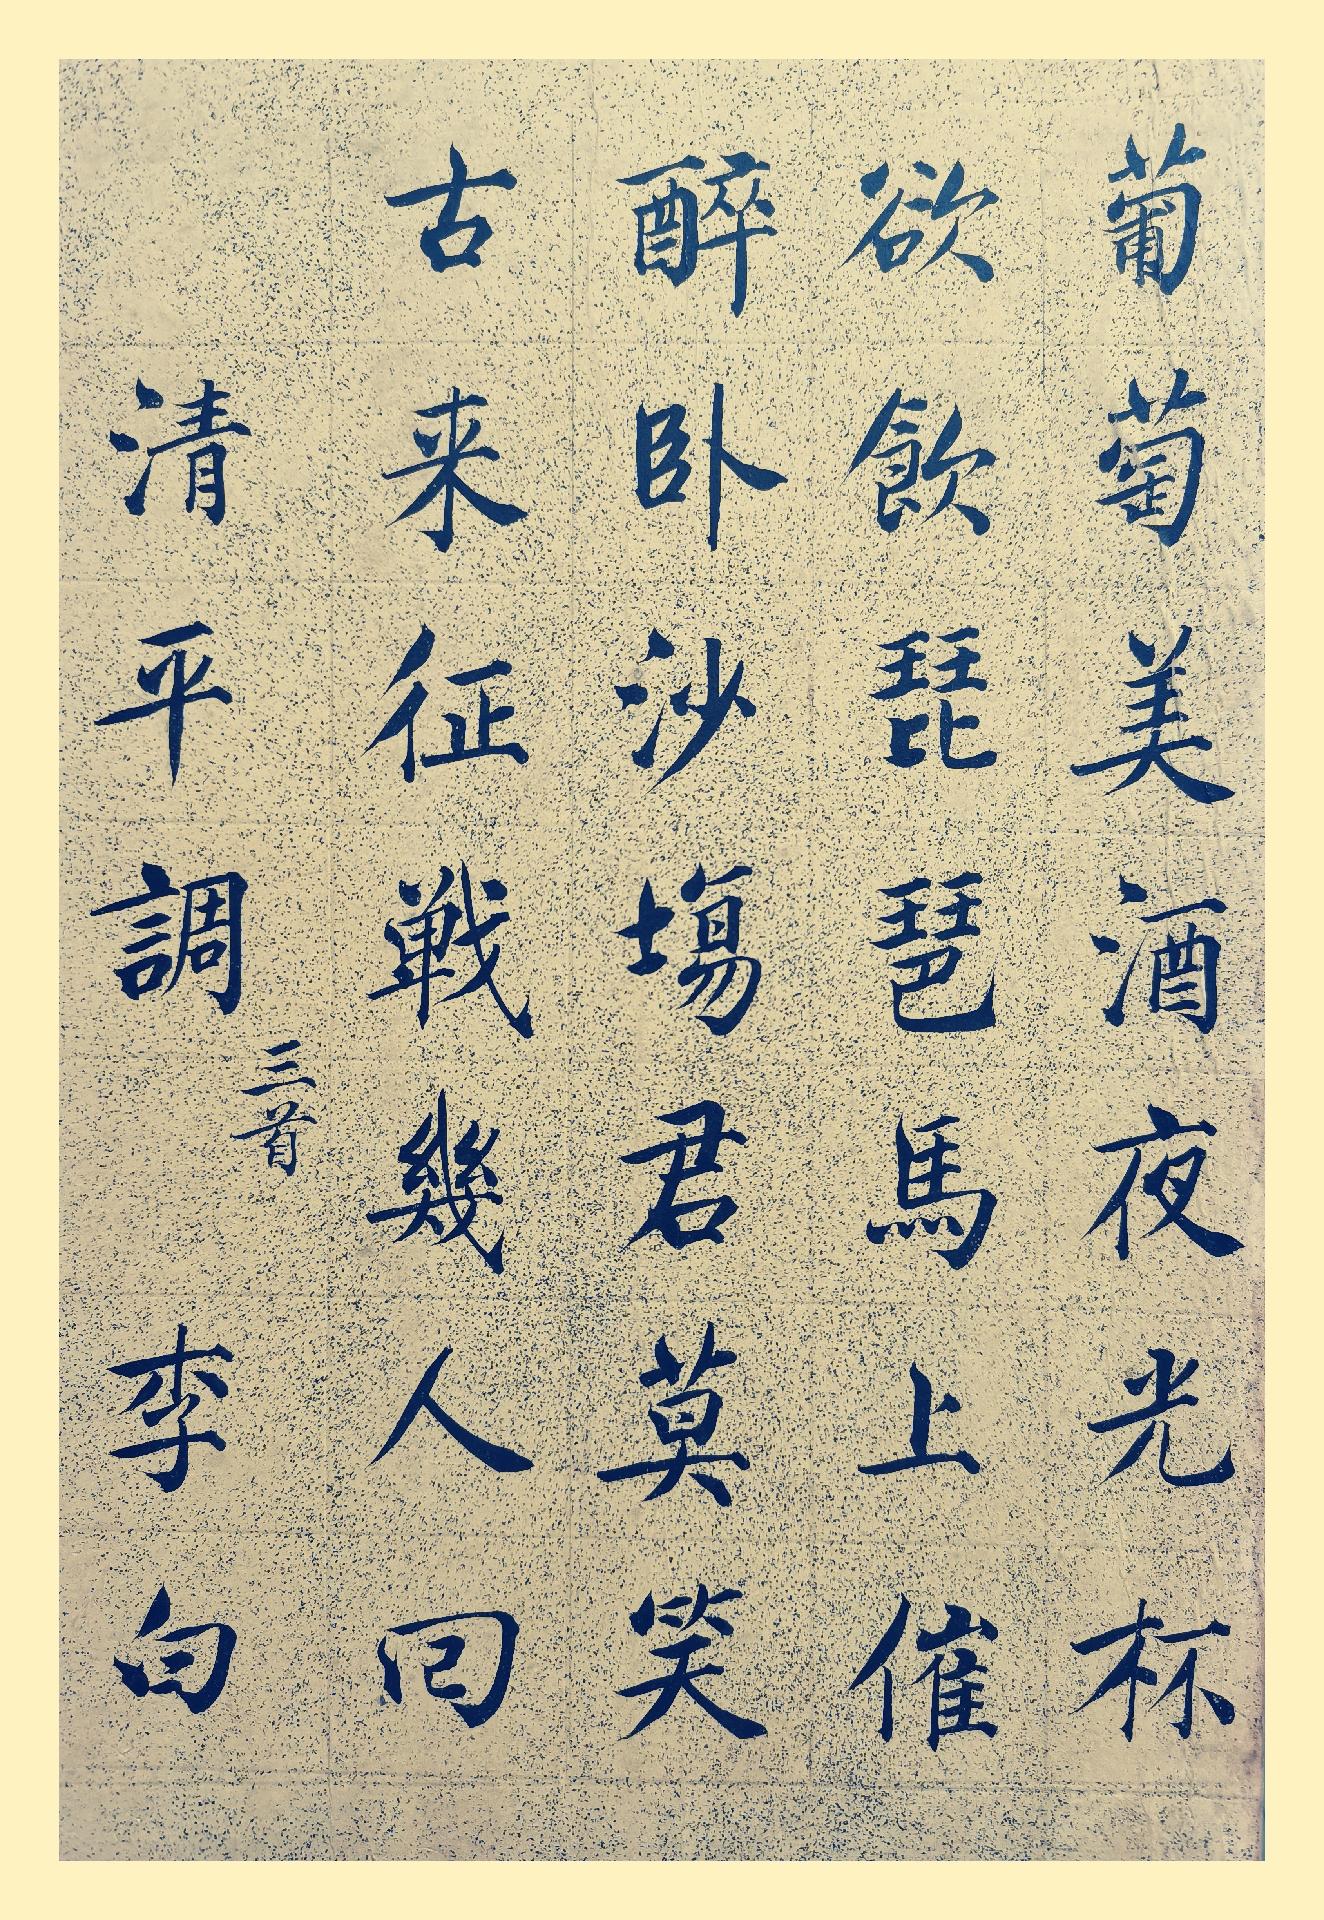 葡萄美酒夜光杯
欲飲琵琶馬上催
醉卧沙塲君莫笑
古来征戦幾人回
清平調三首 李白